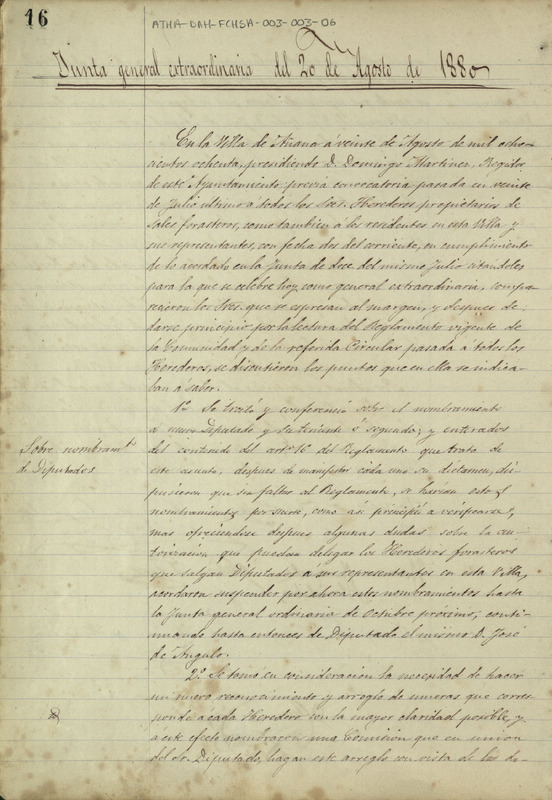 16
ATHA-DAH-FCHSA-003-003-06
Junta general extraordinaria del 20 de Agosto de 1880
En la Villa de Añana á veinte de Agosto de mil ocho-
cientos ochenta, presidiendo D. Domingo Martinez, Regidor
de este Ayuntamiento, previa convocatoria pasada en veinte
de Julio ultimo á todos los Sres. Herederos propietarios de
Sales forasteros, como tambien á los residentes en esta Villa y
sus representantes, con fecha dos del corriente, en cumplimiento
de lo acordado en la Junta de doce del mismo Julio citandoles
para la que se celebre hoy como general extraordinaria, compa-
recieron los Sres. que se espresan al margen, y despues de
darse principio por la lectura del Reglamento vigente de
la Comunidad y de la referida Circular pasada á todos los
Herederos, se discutieron los puntos que en ella se indica-
ban á saber.
1º Se trató y conferenció sobre el nombramiento
de nuevo Diputado y Su teniente ó segundo; y enterados
Sobre nombramto
del contenido del artº 16 del Reglamento que trata de
de Diputados
este asunto, despues de manifestar cada uno su dictamen, dis-
pusieron que sin faltar al Reglamento, se harian estos
nombramientos por suerte, como asi principió a verificarse,
mas ofreciendose despues algunas dudas sobre la au-
torizacion que puedan delegar los Herederos forasteros
que salgan Diputados á sus representantes en esta Villa,
acordaron suspender por ahora estos nombramientos hasta
la Junta general ordinaria de Octubre próximo, conti-
nuando hasta entonces de Diputado el mismo D. José
de Angulo.
2º Se tomó en consideracion la necesidad de hacer
un nuevo reconocimiento y arreglo de mueras que corres-
ponde á cada Heredero con la mayor claridad posible, y
a este efecto nombraron una Comision que en union
del Sr. Diputado, hagan este arreglo con vista de los do-